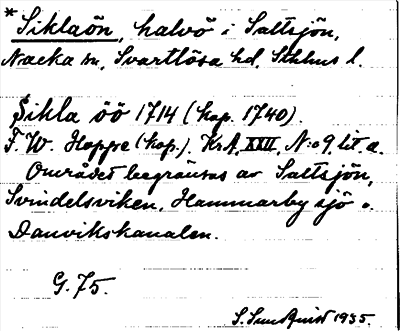 *Siklaön, halvö i Saltsjön,
Nacka sn, Svartlösa hd, Sthlms l.
Sikla öö 1714 (kop. 1740).
F. W. Hoppe (kop.). KrA, XXII, N:o 9 lit. a.
Området begränsas av Saltsjön,
Svindelsviken, Hammarby sjö o.
Danvikskanalen.
G. 75.
S. Sundquist 1935.